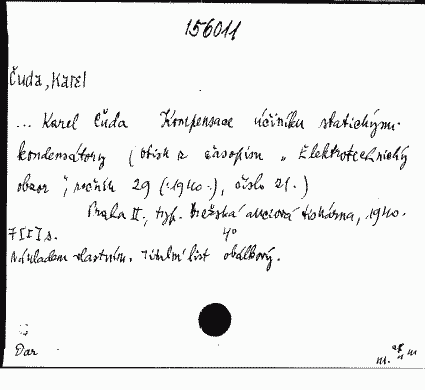 156011
Čuda, Karel
... Karel Čuda Kompensace účiníku statickými
kondensátory (otisk z časopisu „Elektrotechnický
obzor", ročník 29 (1940), číslo 21.)
Praha II., typ. Pražská akciová tiskárna, 1940.
7 [I] s. 4°
Nákladem vlastním. Titulní list obálkový.
Dar